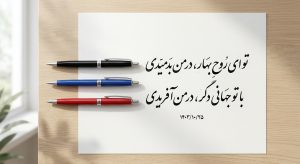 تو ای رُوحِ بهار، در من بَدمیدی
با تو جَهانی دگر، در من آفریدی
۱۴۰۳/۱۰/۲۵